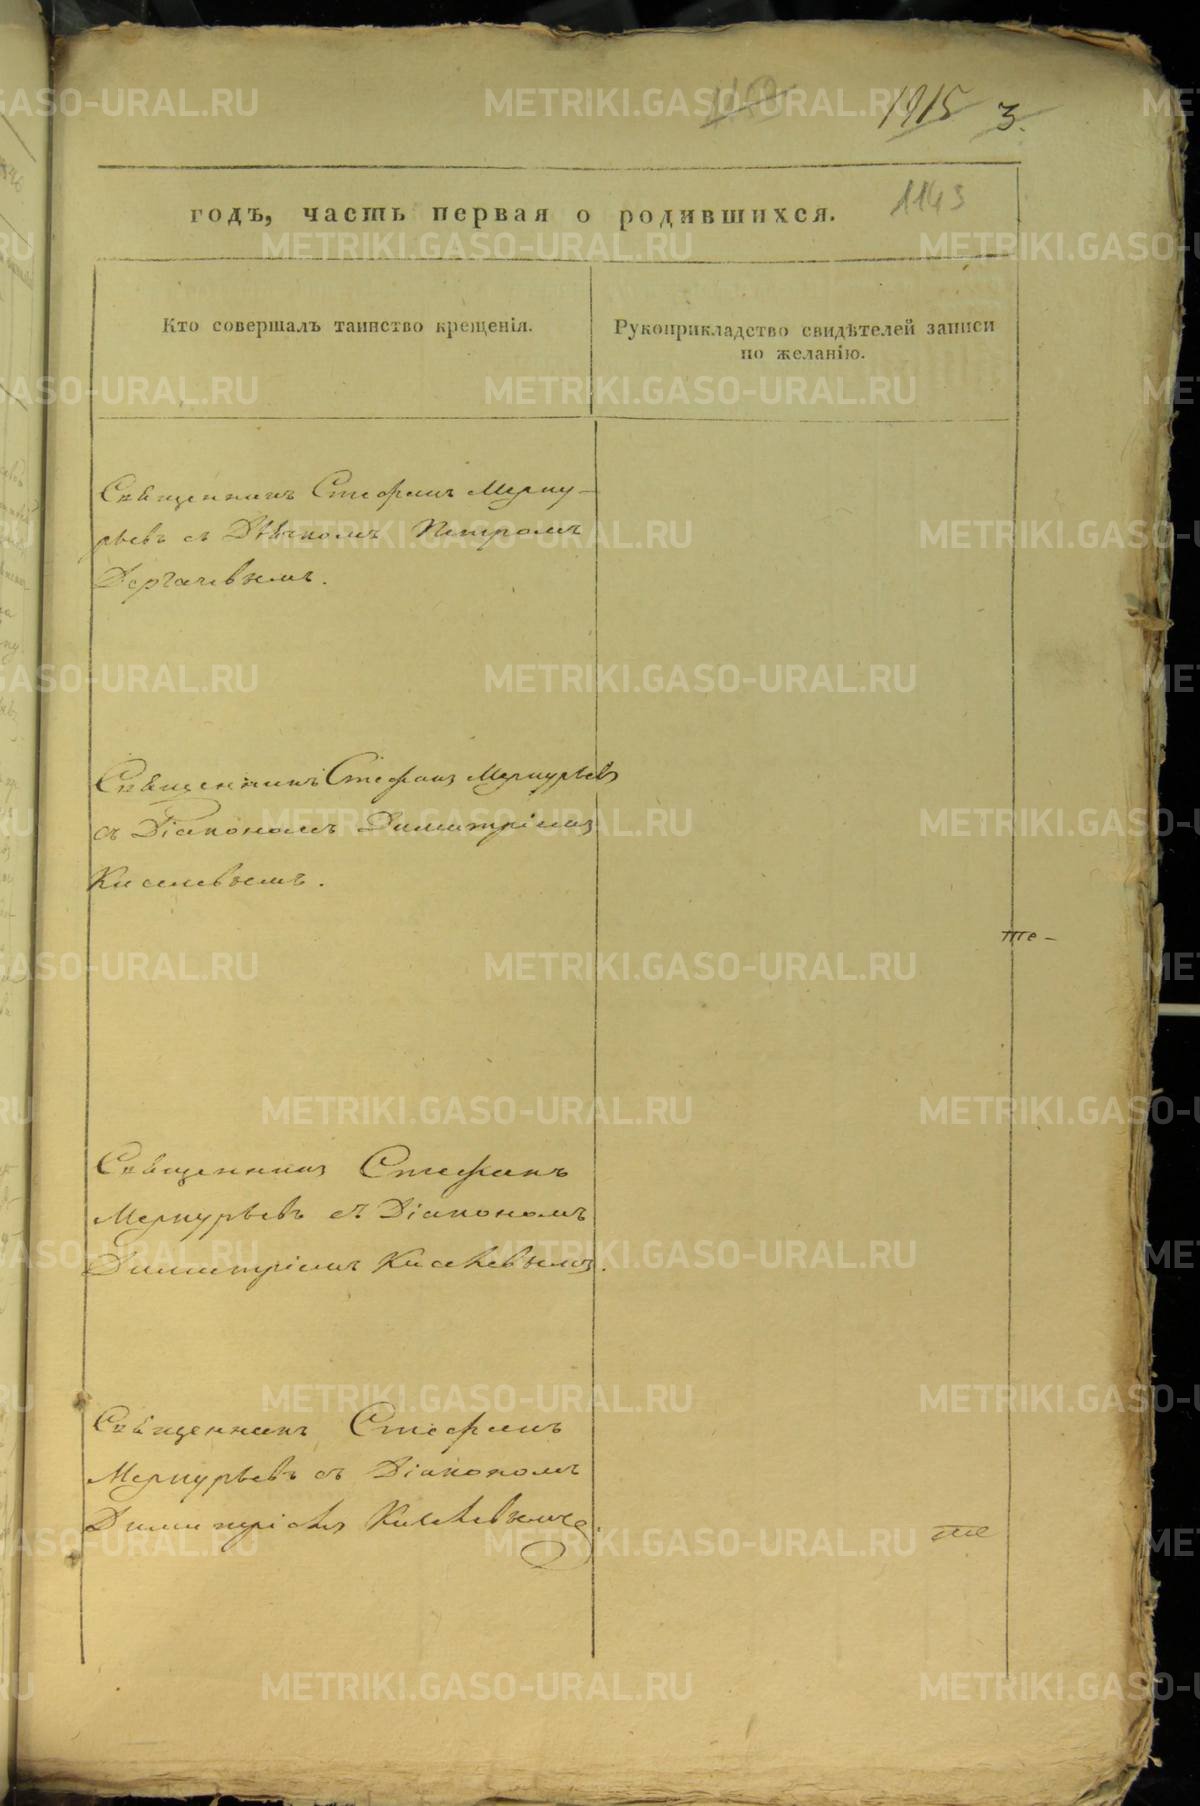 1915 3.
1143
годъ, часть первая о родившихся.
Кто совершалъ таинство крещенія.
Рукоприкладство свидѣтелей записи
по желанію.
Священникъ Стефанъ Мерку-
рьевъ съ Дьячкомъ Петромъ
Дергачевымъ.
Священникъ Стефанъ Меркурьевъ
съ Діакономъ Димитріемъ
Киселевымъ.
те-
Священникъ Стефанъ
Меркурьевъ съ Діакономъ
Димитріемъ Киселевымъ.
Священникъ Стефанъ
Меркурьевъ съ Діакономъ
Димитріемъ Киселевымъ.
те
METRIKI.GASO-URAL.RU